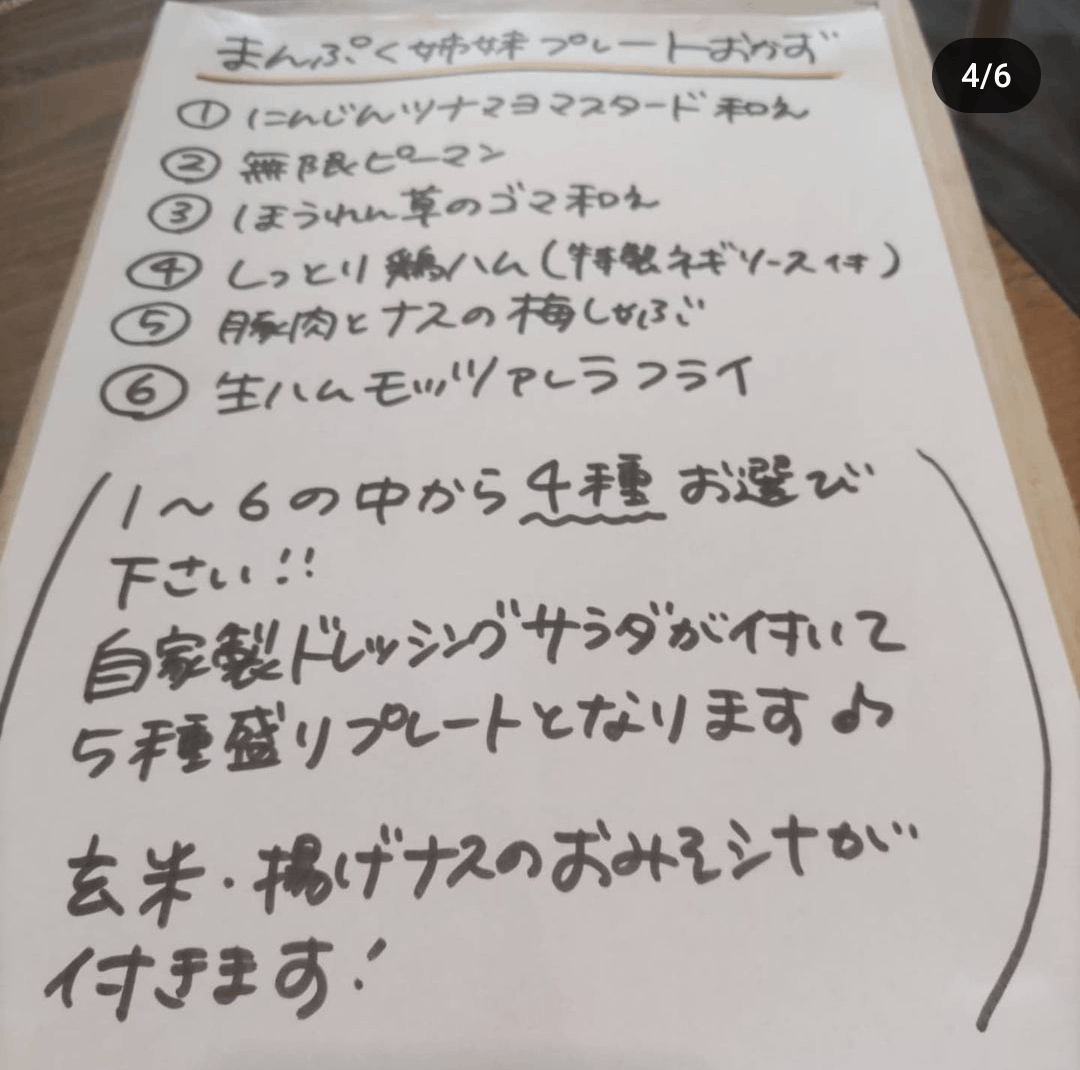 まんぷく姉妹プレートおかず
4/6
① にんじんツナマヨマスタード和え
② 無限ピーマン
③ ほうれん草のゴマ和え
④ しっとり鶏ハム(特製ネギソース付)
⑤ 豚肉とナスの梅しゃぶ
⑥ 生ハムモッツァレラフライ
(1～6の中から4種お選び
下さい!!
自家製ドレッシングサラダが付いて
5種盛りプレートとなります♪
玄米・揚げナスのおみそシナが
付きます!)